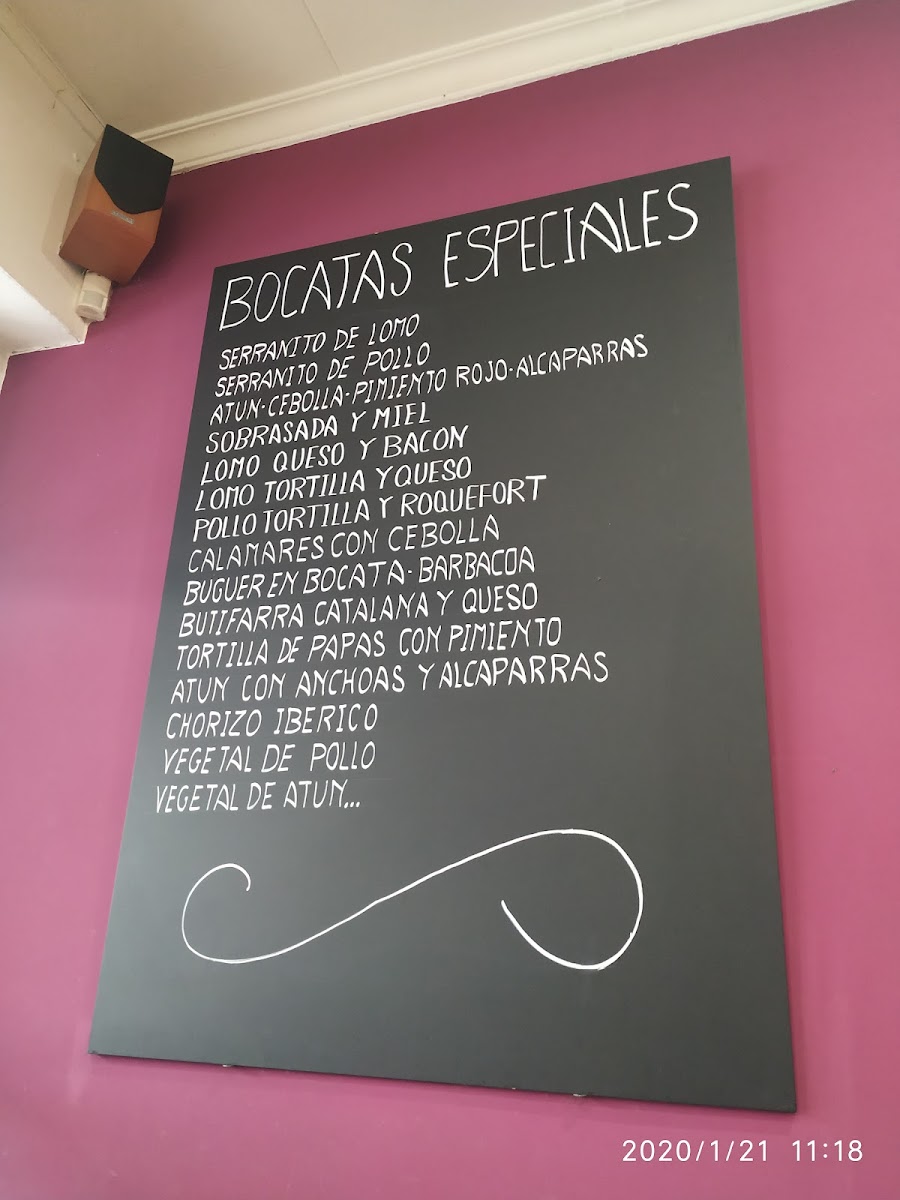 BOCATAS ESPECIALES
SERRANITO DE LOMO
SERRANITO DE POLLO
ATUN-CEBOLLA-PIMIENTO ROJO-ALCAPARRAS
SOBRASADA Y MIEL
LOMO QUESO Y BACON
LOMO TORTILLA Y QUESO
POLLO TORTILLA Y ROQUEFORT
CALAMARES CON CEBOLLA
BUGUER EN BOCATA-BARBACOA
BUTIFARRA CATALANA Y QUESO
TORTILLA DE PAPAS CON PIMIENTO
ATUN CON ANCHOAS Y ALCAPARRAS
CHORIZO IBERICO
VEGETAL DE POLLO
VEGETAL DE ATUN...
2020/1/21 11:18